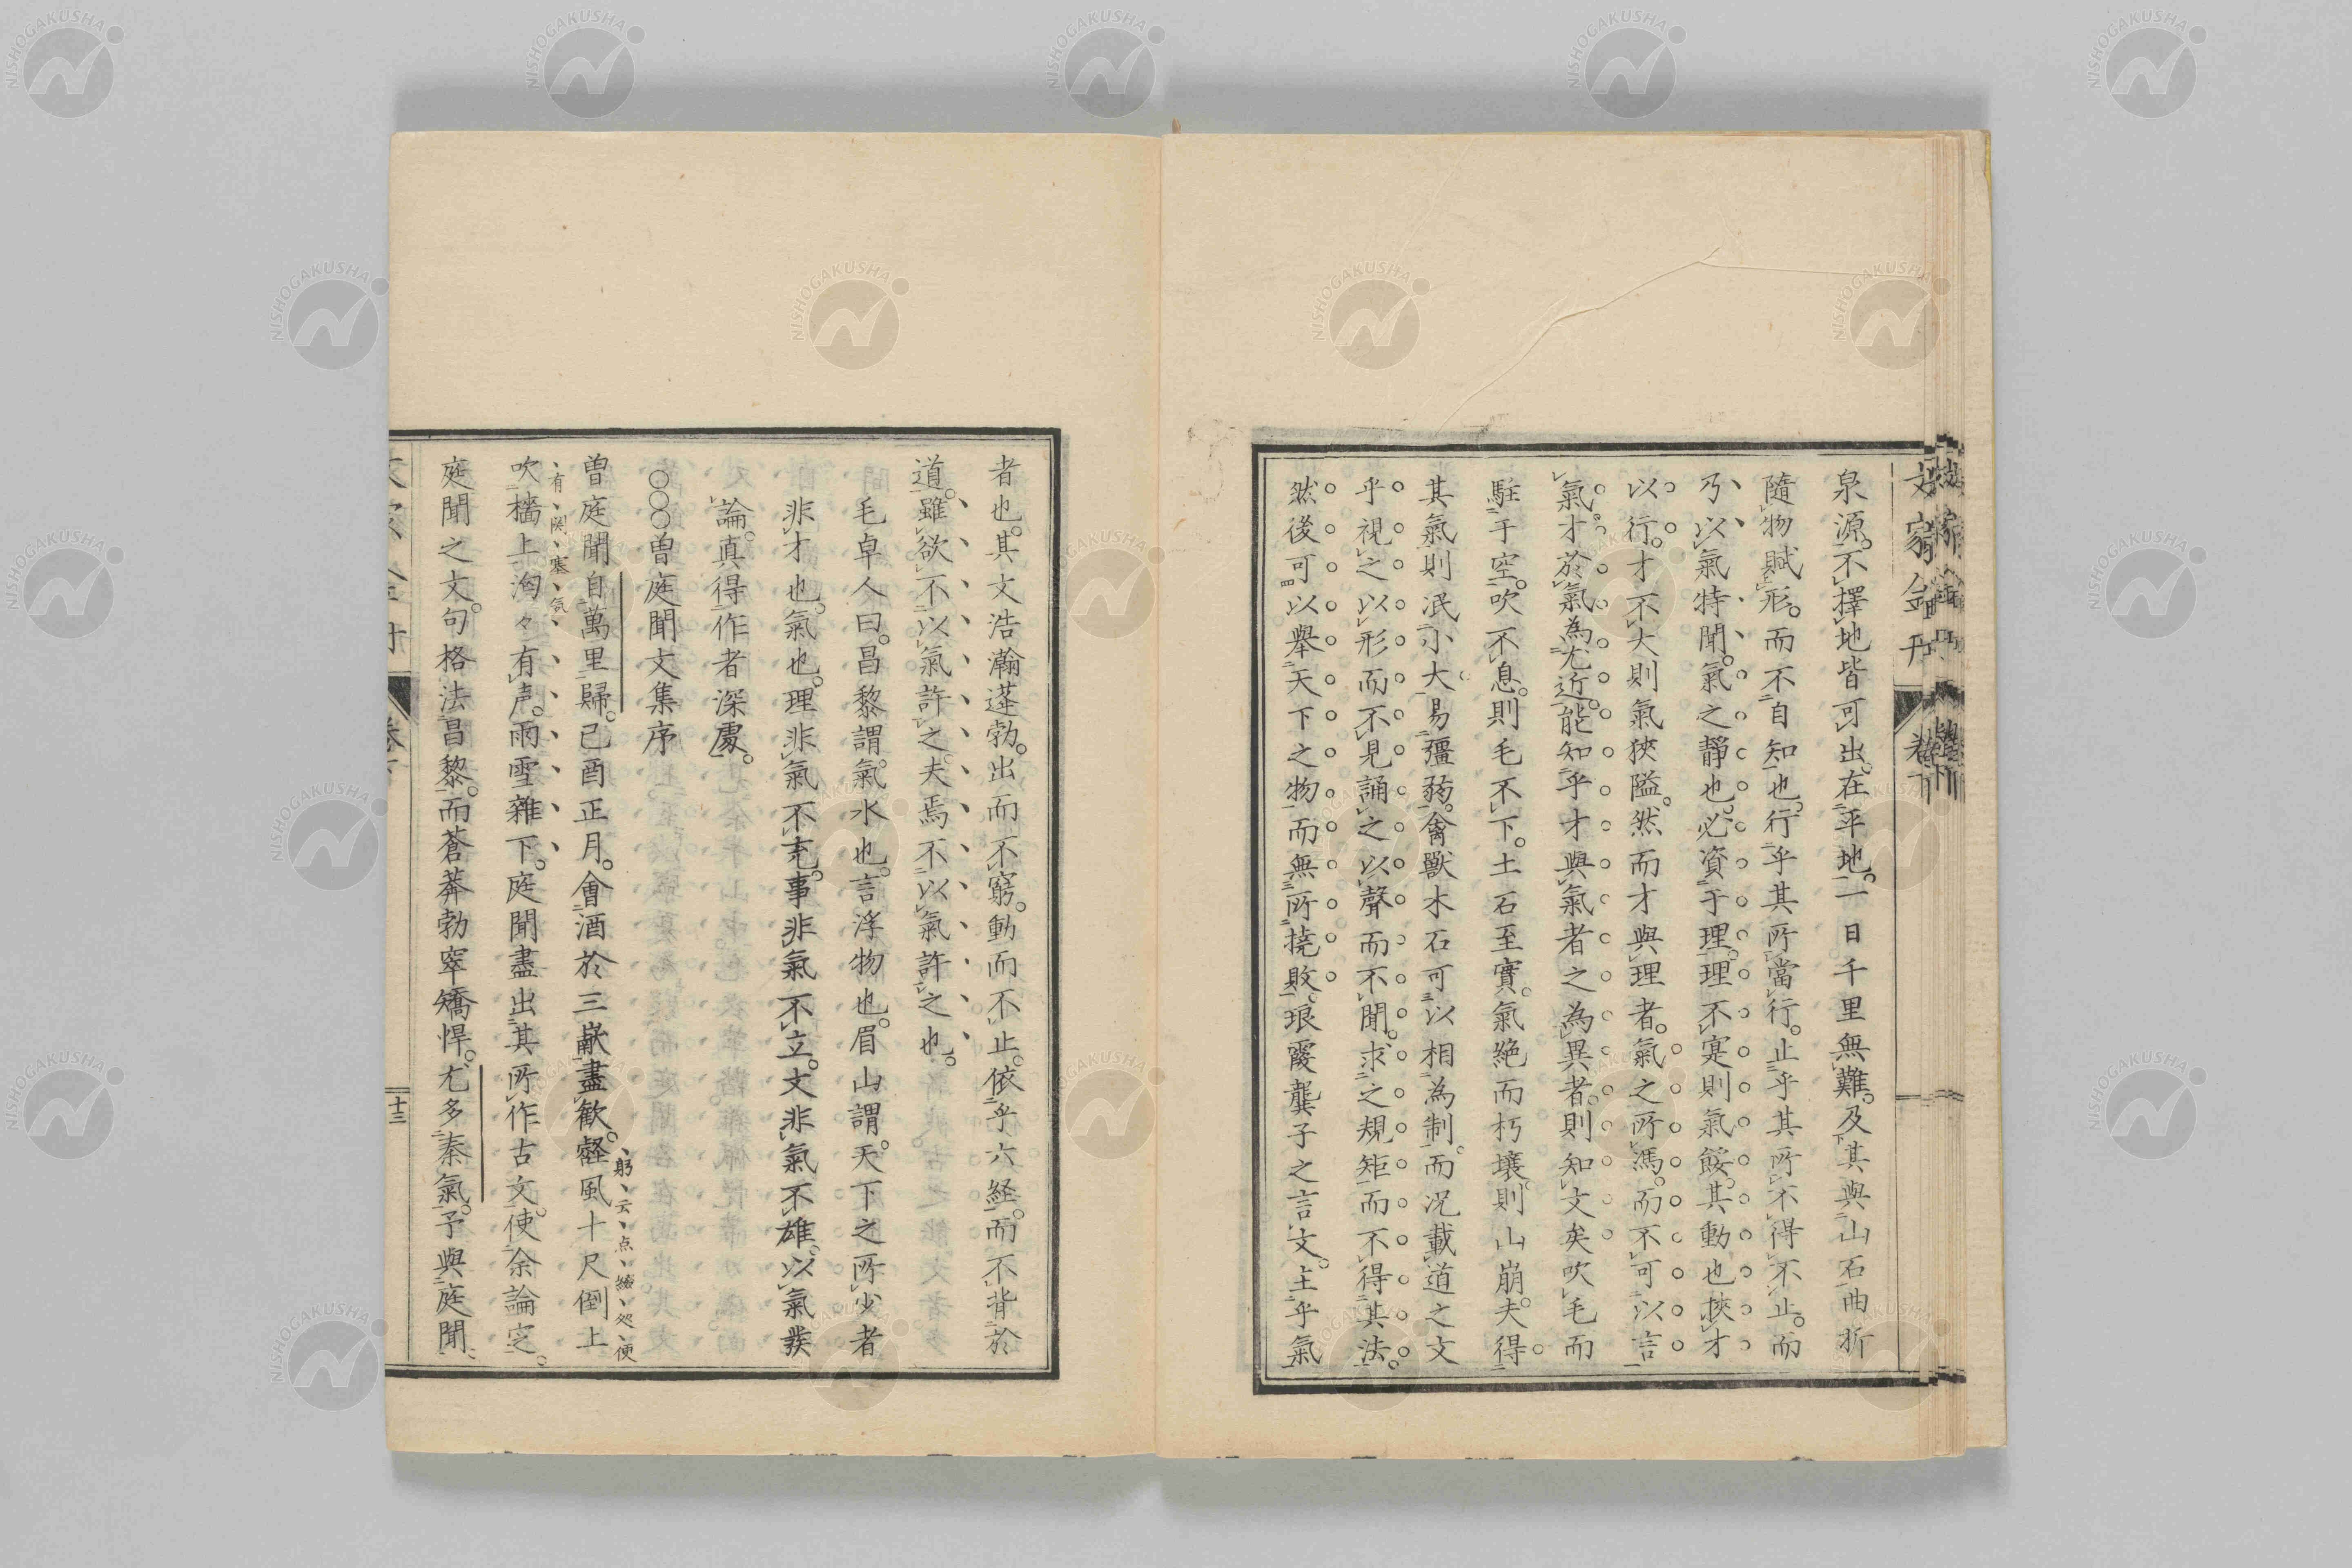 文家金丹 卷下
泉源。不擇地皆可出。在平地。一日千里無難。及其與山石曲折
隨物賦形。而不自知也。行乎其所當行。止乎其所不得不止。而
乃以氣特聞。氣之靜也。必資于理。理不寔則氣餒。其動也挾才
以行。才不大則氣狹隘。然而才與理者。氣之所馮。而不可以言
氣。才於氣為尤近。能知乎才與氣者之為異者。則知文矣。吹毛而
駐于空。吹不息。則毛不下。土石至實。氣絶而朽壤。則山崩。夫得
其氣則泯小大易彊弱。禽獸木石可以相為制。而况載道之文
乎視之以形而不見誦之以聲而不聞。求之規矩而不得其法。
然後可以舉天下之物而無所撓敗。琅霞龔子之言文。主乎氣
者也。其文浩瀚蓬勃。出而不窮。動而不止。依乎六経。而不背於
道。雖欲不以氣許之。夫焉不以氣許之也。
毛卓人曰。昌黎謂。氣水也。言浮物也。眉山謂。天下之所少者
非才也。氣也。理非氣不充。事非氣不立。文非氣不雄。以氣
論。真得作者深處。
○○○曽庭聞文集序
曽庭聞自萬里歸。己酉正月。會酒於三巘。盡歓。谿風十尺倒上
躬、云、点、綴、処、便
、有、関、塞、気、
吹檣上。洶々有声。雨雪雜下。庭聞盡出其所作古文。使余論定。
庭聞之文。句格法昌黎。而蒼莽勃窣矯悍。尤多秦氣。予與庭聞
十三